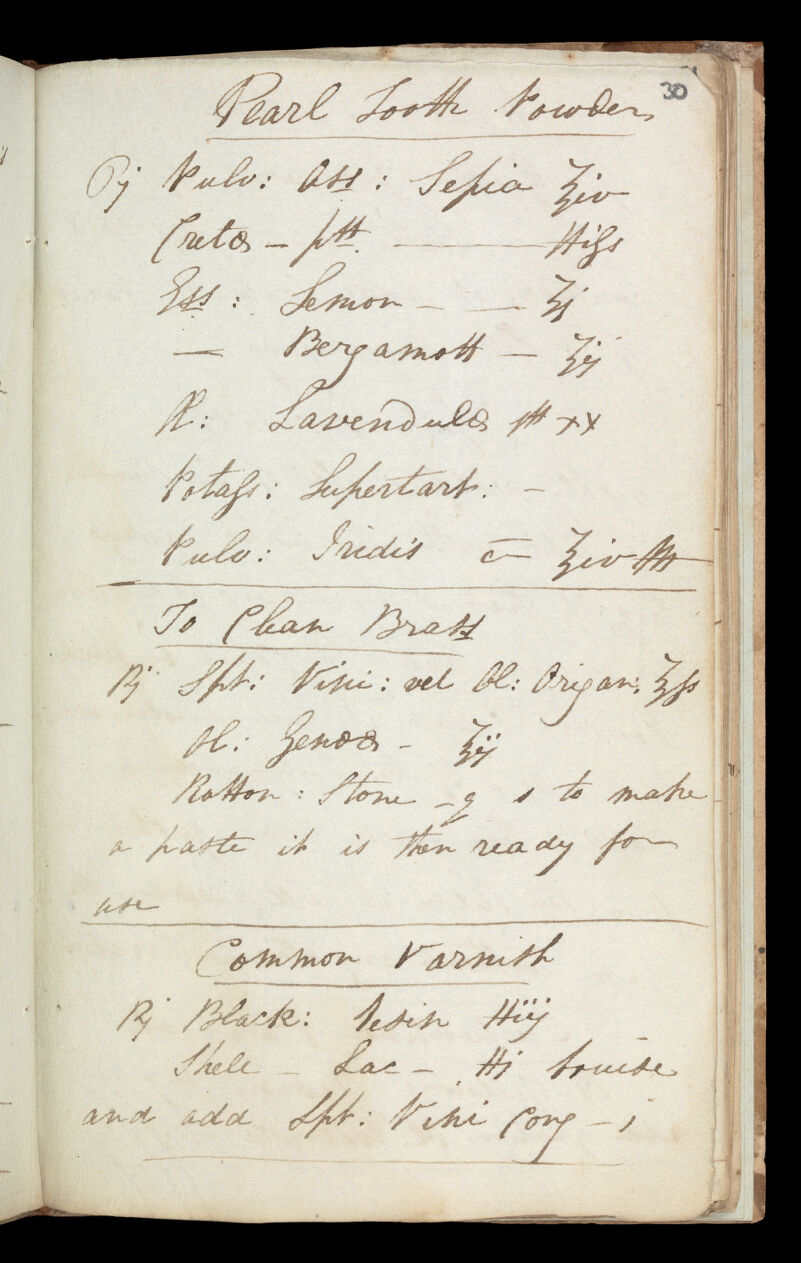 30
Pearl Tooth Powder
℞ Pulv: Oss: Sepia ℥iv
Cretæ – ptt. — ℔iſs
Ess: Lemon – — ʒj
— Bergamott — ʒij
Ol: Lavendulæ ♏ xx
Potaſs: Supertart: –
Pulv: Iridis a— ℥iv
To Clean Brass
℞ Spt: Vini: vel Ol: Origan: ℥ſs
Ol: Terebæ – ℥iij
Rotton: Stone – q s to make
a paste it is then ready for
use
Common Varnish
℞ Black: Resin ℔iij
Shele – Lac – ℔j bruise
and add Spt: Vini Cong – i